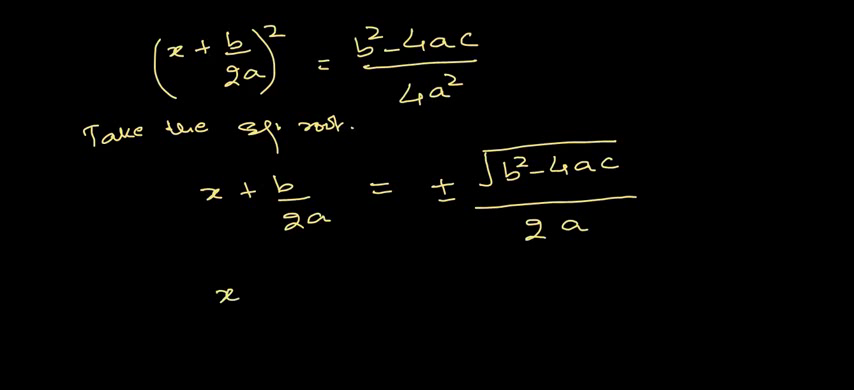 (x + b/2a)² = b² - 4ac / 4a²
Take the sq. root.
x + b/2a = ± √b² - 4ac / 2a
x